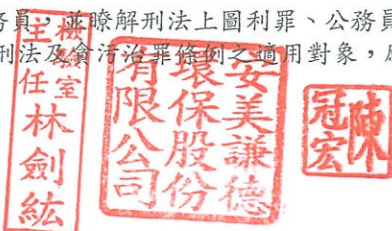 務員，並瞭解刑法上圖利罪、公務員
刑法及貪污治罪條例之適用對象，
檢驗室
主任
林劍紘
安美謙德
環保股份
有限公司
陳
冠宏